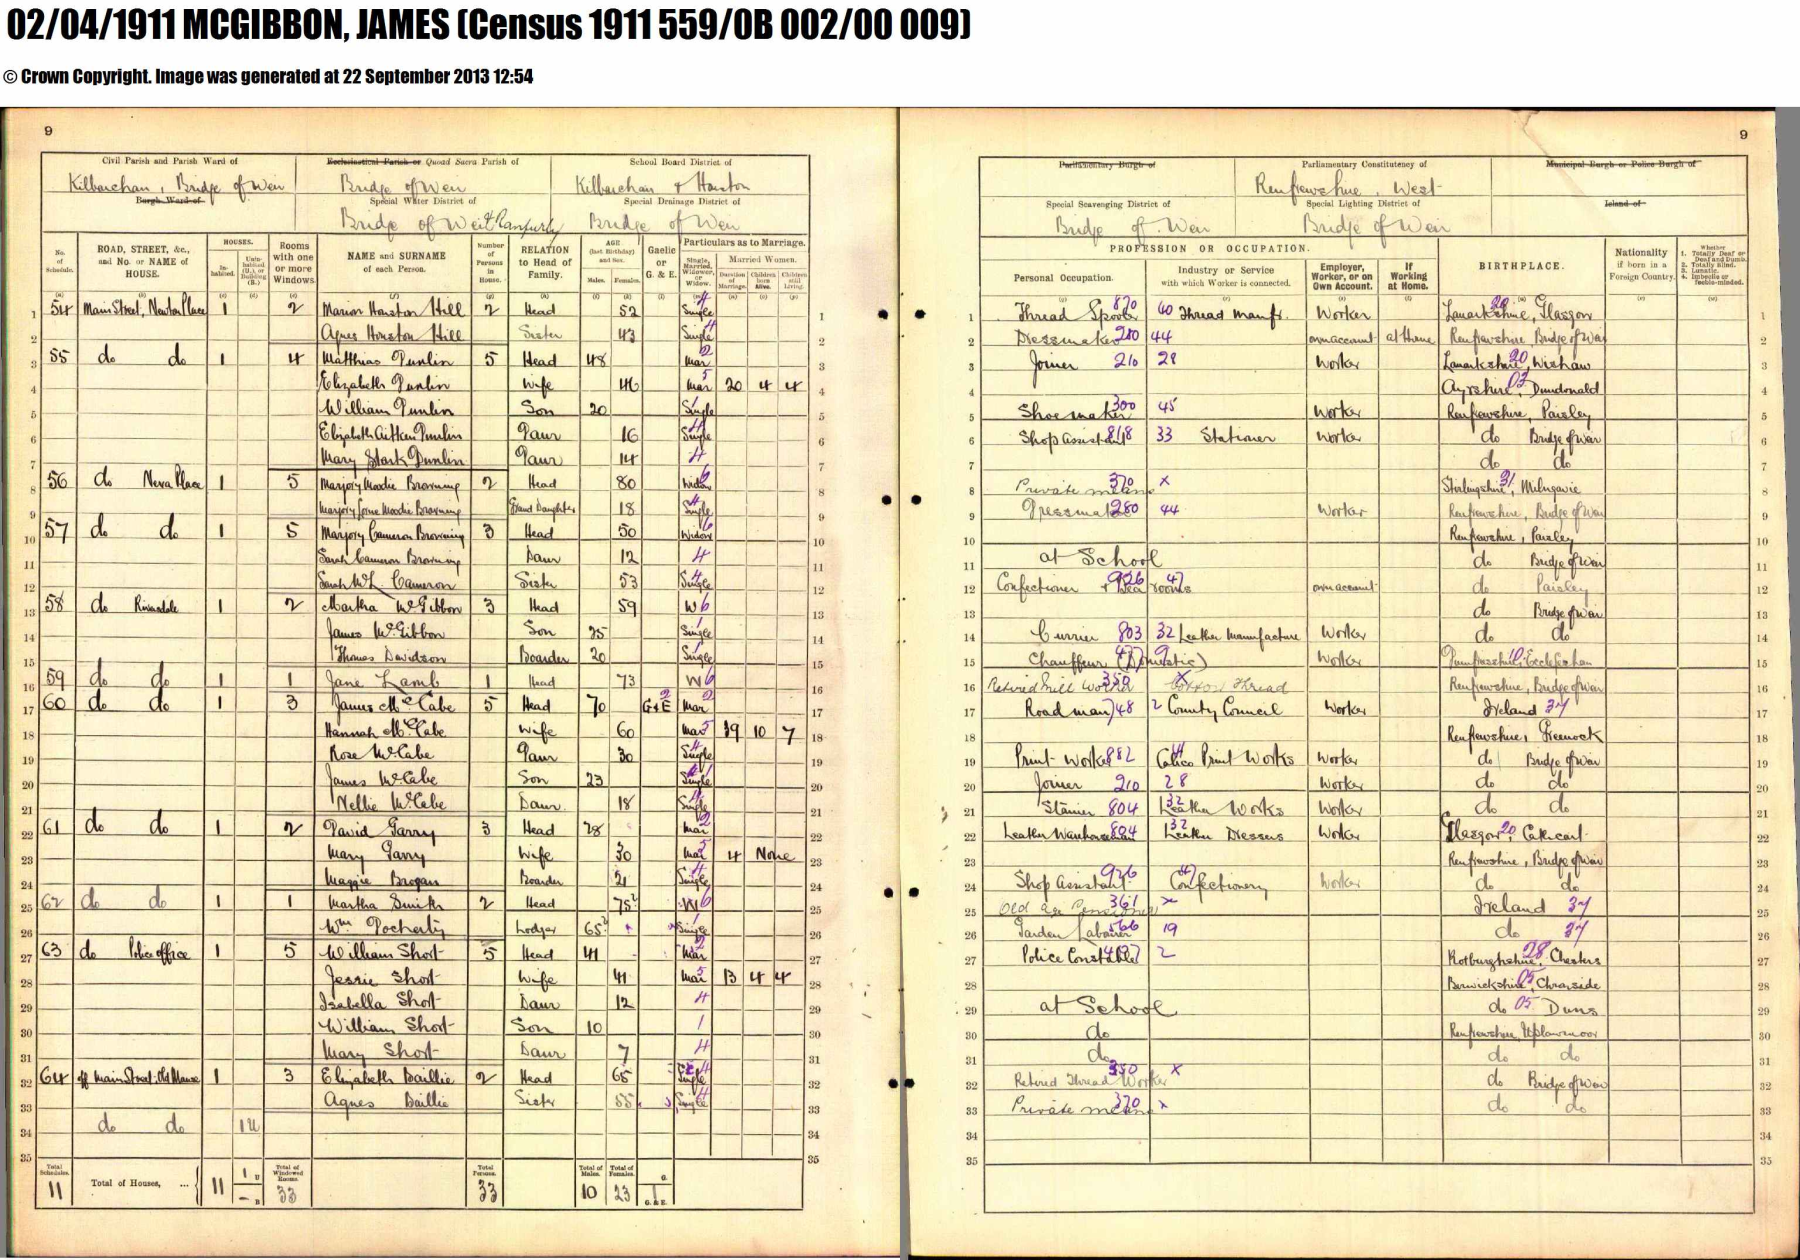 02/04/1911 MCGIBBON, JAMES (Census 1911 559/0B 002/00 009)
© Crown Copyright. Image was generated at 22 September 2013 12:54
9
Civil Parish and Parish Ward of
Kilbarchan, Bridge of Weir
Burgh Ward of
Ecclesiastical Parish or Quoad Sacra Parish of
Bridge of Weir
School Board District of
Kilbarchan & Houston
Special Water District of
Bridge of Weir & Ranfurly
Special Drainage District of
Bridge of Weir
No. of Schedule. ROAD, STREET, &c., and No. or NAME of HOUSE. HOUSES. Inhabited. Uninhabited (U.), or Building (B.) Rooms with one or more Windows. NAME and SURNAME of each Person. Number of Persons in House. RELATION to Head of Family. AGE (last Birthday) and Sex. Males. Females. Gaelic or G. & E. Particulars as to Marriage. Single, Married, Widower, or Widow. Married Women. Duration of Marriage. Children born Alive. Children still Living.
1 54 Main Street, Newton Place 1 2 Marion Houston Hill 2 Head 52 Single 4
2 Agnes Houston Hill Sister 43 Single 4
3 55 do do 1 4 Matthias Dunlin 5 Head 48 Mar 2
4 Elizabeth Dunlin Wife 46 Mar 5 20 4 4
5 William Dunlin Son 20 Single 1
6 Elizabeth Aitken Dunlin Daur 16 Single 4
7 Mary Stark Dunlin Daur 14 4
8 56 do Neva Place 1 5 Marjory Moodie Browning 2 Head 80 Widow 6
9 Marjory Moodie Browning Grand Daughter 18 Single 4
10 57 do do 1 5 Marjory Cameron Browning 3 Head 50 Widow 6
11 Sarah Cameron Browning Daur 12 4
12 Sarah McL. Cameron Sister 53 Single 4
13 58 do 1 2 Martha McGibbon 3 Head 59 W 6
14 James McGibbon Son 25 Single 1
15 Thomas Davidson Boarder 20 Single 1
16 59 do do 1 1 Jane Lamb 1 Head 73 W 6
17 60 do do 1 3 James McCabe 5 Head 70 G & E 2 Mar 2
18 Hannah McCabe Wife 60 Mar 5 39 10 7
19 Rose McCabe Daur 30 Single 4
20 James McCabe Son 23 Single 1
21 Nellie McCabe Daur 18 Single 4
22 61 do do 1 2 David Garry 3 Head 28 Mar 2
23 Mary Garry Wife 30 Mar 5 4 None
24 Maggie Brogan Boarder 21 Single 4
25 62 do do 1 1 Martha Smith 2 Head 75 W 6
26 Wm Docherty Lodger 65 Single 1
27 63 do Police office 1 5 William Short 5 Head 41 Mar 2
28 Jessie Short Wife 41 Mar 5 13 4 4
29 Isabella Short Daur 12 4
30 William Short Son 10 1
31 Mary Short Daur 7 4
32 64 off Main Street: Old Manse 1 3 Elizabeth Baillie 2 Head 65 Single 4
33 Agnes Baillie Sister 55 Single 4
34 do do 1U
35
Total Schedules. 11 Total of Houses, ... 11 1 U – B Total of Windowed Rooms 33 Total Persons. 33 Total of Males. 10 Total of Females. 23 G. G. & E. 1
9
Parliamentary Burgh of
Parliamentary Constituency of
Renfrewshire, West
Municipal Burgh or Police Burgh of
Special Scavenging District of
Bridge of Weir
Special Lighting District of
Bridge of Weir
Island of
PROFESSION OR OCCUPATION. Personal Occupation. Industry or Service with which Worker is connected. Employer, Worker, or on Own Account. If Working at Home. BIRTHPLACE. Nationality if born in a Foreign Country. Whether 1. Totally Deaf or Deaf and Dumb. 2. Totally Blind. 3. Lunatic. 4. Imbecile or feeble-minded.
1 Thread Spooler 870 60 Thread manfr. Worker Lanarkshire, 20 Glasgow
2 Dressmaker 280 44 own account at Home Renfrewshire, Bridge of Weir
3 Joiner 210 28 Worker Lanarkshire, 20 Wishaw
4 Ayrshire, 03 Dundonald
5 Shoemaker 300 45 Worker Renfrewshire, Paisley
6 Shop assistant 818 33 Stationer Worker do Bridge of Weir
7 do do
8 Private means 370 x Stirlingshire, 31 Milngavie
9 Dressmaker 280 44 Worker Renfrewshire, Bridge of Weir
10 Renfrewshire, Paisley
11 at School do Bridge of Weir
12 Confectioner & Tea rooms 926 47 own account do Paisley
13 do Bridge of Weir
14 Currier 803 32 Leather Manufacture Worker do do
15 Chauffeur (Domestic) Worker Dumfriesshire, 10 Ecclefechan
16 Retired Mill Worker 350 x Cotton Thread Renfrewshire, Bridge of Weir
17 Roadman 748 2 County Council Worker Ireland 37
18 Renfrewshire, Greenock
19 Print Worker 882 Calico Print Works Worker do Bridge of Weir
20 Joiner 210 28 Worker do do
21 Stainer 804 32 Leather Works Worker do do
22 Leather Warehouseman 804 32 Leather Dressers Worker Glasgow, 20 Cathcart
23 Renfrewshire, Bridge of Weir
24 Shop Assistant 926 47 Confectionery Worker do do
25 Old Age Pensioner 361 x Ireland 37
26 Garden Labourer 566 19 do 37
27 Police Constable 2 Roxburghshire, 28 Chesters
28 Berwickshire, 05 Chirnside
29 at School do 05 Duns
30 do Renfrewshire, Uplawmoor
31 do do do
32 Retired Thread Worker 350 x do Bridge of Weir
33 Private means 370 x do do
34
35